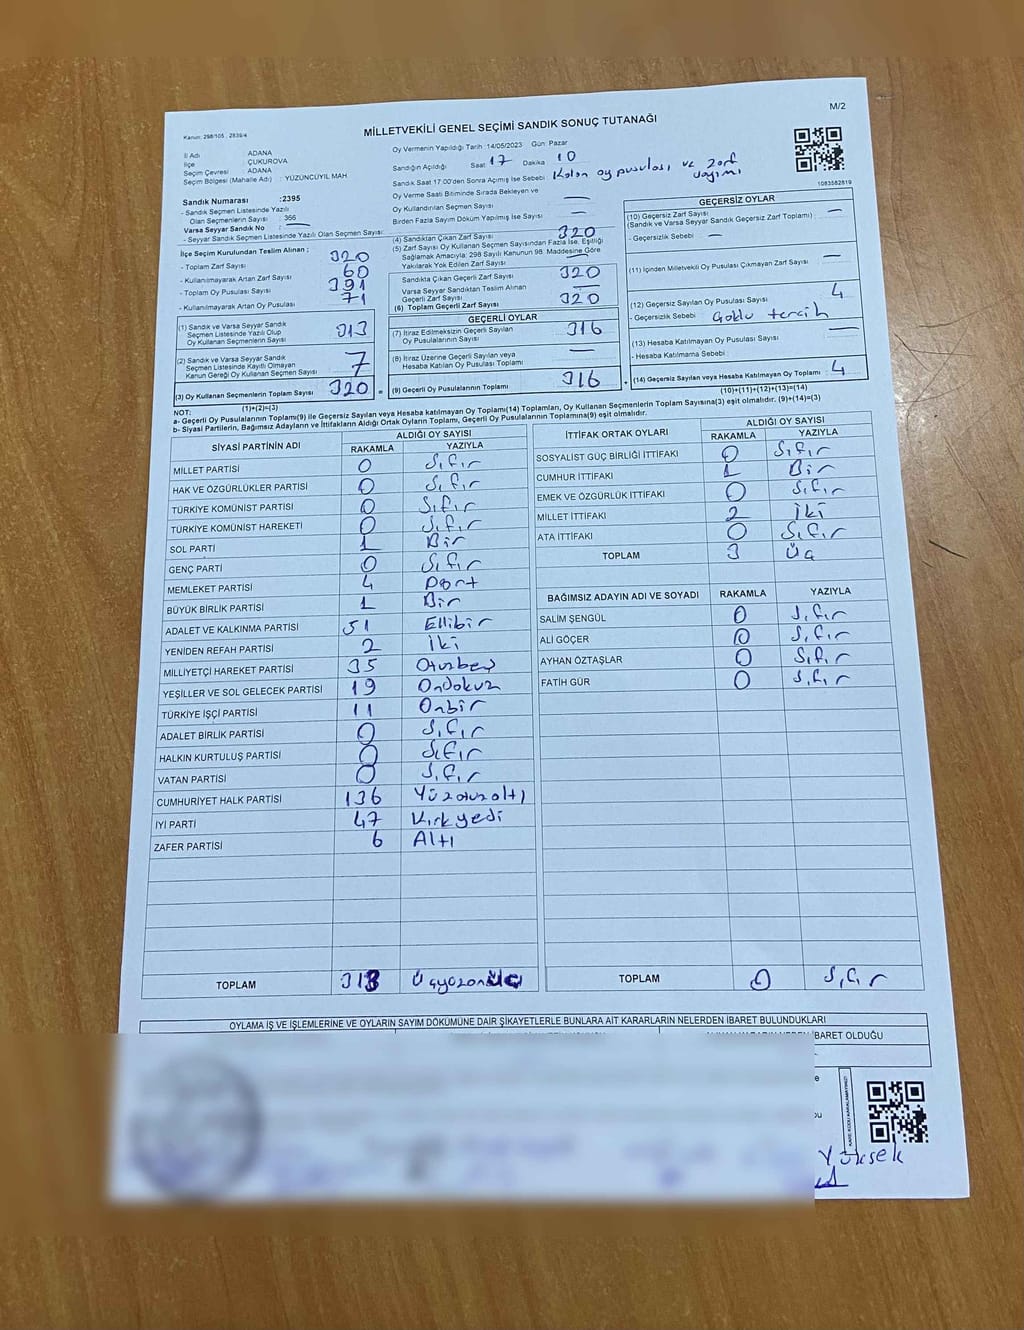 M/2
Kanun: 298/105 , 2839/4
MİLLETVEKİLİ GENEL SEÇİMİ SANDIK SONUÇ TUTANAĞI
İl Adı : ADANA
İlçe : ÇUKUROVA
Seçim Çevresi : ADANA
Seçim Bölgesi (Mahalle Adı) : YÜZÜNCÜYIL MAH.
Sandık Numarası :2395
- Sandık Seçmen Listesinde Yazılı
Olan Seçmenlerin Sayısı : 366
Varsa Seyyar Sandık No
- Seyyar Sandık Seçmen Listesinde Yazılı Olan Seçmen Sayısı:
Oy Vermenin Yapıldığı Tarih :14/05/2023 Gün: Pazar
Sandığın Açıldığı Saat 17 Dakika 10
Sandık Saat 17:00'den Sonra Açılmış İse Sebebi Kalan oy pusulası ve zarf sayımı
Oy Verme Saati Bitiminde Sırada Bekleyen ve
Oy Kullandırılan Seçmen Sayısı —
Birden Fazla Sayım Döküm Yapılmış İse Sayısı —
1083582819
İlçe Seçim Kurulundan Teslim Alınan :
- Toplam Zarf Sayısı 320
- Kullanılmayarak Artan Zarf Sayısı 60
- Toplam Oy Pusulası Sayısı 391
- Kullanılmayarak Artan Oy Pusulası 71
(1) Sandık ve Varsa Seyyar Sandık
Seçmen Listesinde Yazılı Olup
Oy Kullanan Seçmenlerin Sayısı 313
(2) Sandık ve Varsa Seyyar Sandık
Seçmen Listesinde Kayıtlı Olmayan
Kanun Gereği Oy Kullanan Seçmen Sayısı 7
(3) Oy Kullanan Seçmenlerin Toplam Sayısı 320 =
(1)+(2)=(3)
(4) Sandıktan Çıkan Zarf Sayısı 320
(5) Zarf Sayısı Oy Kullanan Seçmen Sayısından Fazla İse, Eşitliği
Sağlamak Amacıyla; 298 Sayılı Kanunun 98. Maddesine Göre
Yakılarak Yok Edilen Zarf Sayısı —
Sandıkta Çıkan Geçerli Zarf Sayısı 320
Varsa Seyyar Sandıktan Teslim Alınan
Geçerli Zarf Sayısı —
(6) Toplam Geçerli Zarf Sayısı 320
GEÇERLİ OYLAR
(7) İtiraz Edilmeksizin Geçerli Sayılan
Oy Pusulalarının Sayısı 316
(8) İtiraz Üzerine Geçerli Sayılan veya
Hesaba Katılan Oy Pusulası Toplamı —
(9) Geçerli Oy Pusulalarının Toplamı 316 +
GEÇERSİZ OYLAR
(10) Geçersiz Zarf Sayısı
(Sandık ve Varsa Seyyar Sandık Geçersiz Zarf Toplamı) —
- Geçersizlik Sebebi —
(11) İçinden Milletvekili Oy Pusulası Çıkmayan Zarf Sayısı —
(12) Geçersiz Sayılan Oy Pusulası Sayısı 4
- Geçersizlik Sebebi Çoklu tercih
(13) Hesaba Katılmayan Oy Pusulası Sayısı —
- Hesaba Katılmama Sebebi
(14) Geçersiz Sayılan veya Hesaba Katılmayan Oy Toplamı 4
(10)+(11)+(12)+(13)=(14)
NOT:
a- Geçerli Oy Pusulalarının Toplamı(9) ile Geçersiz Sayılan veya Hesaba katılmayan Oy Toplamı(14) Toplamları, Oy Kullanan Seçmenlerin Toplam Sayısına(3) eşit olmalıdır. (9)+(14)=(3)
b- Siyasi Partilerin, Bağımsız Adayların ve İttifakların Aldığı Ortak Oyların Toplamı, Geçerli Oy Pusulalarının Toplamına(9) eşit olmalıdır.
SİYASİ PARTİNİN ADI ALDIĞI OY SAYISI
RAKAMLA YAZIYLA
MİLLET PARTİSİ 0 Sıfır
HAK VE ÖZGÜRLÜKLER PARTİSİ 0 Sıfır
TÜRKİYE KOMÜNİST PARTİSİ 0 Sıfır
TÜRKİYE KOMÜNİST HAREKETİ 0 Sıfır
SOL PARTİ 1 Bir
GENÇ PARTİ 0 Sıfır
MEMLEKET PARTİSİ 4 Dört
BÜYÜK BİRLİK PARTİSİ 1 Bir
ADALET VE KALKINMA PARTİSİ 51 Ellibir
YENİDEN REFAH PARTİSİ 2 İki
MİLLİYETÇİ HAREKET PARTİSİ 35 Otuzbeş
YEŞİLLER VE SOL GELECEK PARTİSİ 19 Ondokuz
TÜRKİYE İŞÇİ PARTİSİ 11 Onbir
ADALET BİRLİK PARTİSİ 0 Sıfır
HALKIN KURTULUŞ PARTİSİ 0 Sıfır
VATAN PARTİSİ 0 Sıfır
CUMHURİYET HALK PARTİSİ 136 Yüzotuzaltı
İYİ PARTİ 47 Kırkyedi
ZAFER PARTİSİ 6 Altı
TOPLAM 313 Üçyüzonüç
İTTİFAK ORTAK OYLARI ALDIĞI OY SAYISI
RAKAMLA YAZIYLA
SOSYALİST GÜÇ BİRLİĞİ İTTİFAKI 0 Sıfır
CUMHUR İTTİFAKI 1 Bir
EMEK VE ÖZGÜRLÜK İTTİFAKI 0 Sıfır
MİLLET İTTİFAKI 2 İki
ATA İTTİFAKI 0 Sıfır
TOPLAM 3 Üç
BAĞIMSIZ ADAYIN ADI VE SOYADI RAKAMLA YAZIYLA
SALİM ŞENGÜL 0 Sıfır
ALİ GÖÇER 0 Sıfır
AYHAN ÖZTAŞLAR 0 Sıfır
FATİH GÜR 0 Sıfır
TOPLAM 0 Sıfır
OYLAMA İŞ VE İŞLEMLERİNE VE OYLARIN SAYIM DÖKÜMÜNE DAİR ŞİKAYETLERLE BUNLARA AİT KARARLARIN NELERDEN İBARET BULUNDUKLARI
İBARET OLDUĞU
Yüksek